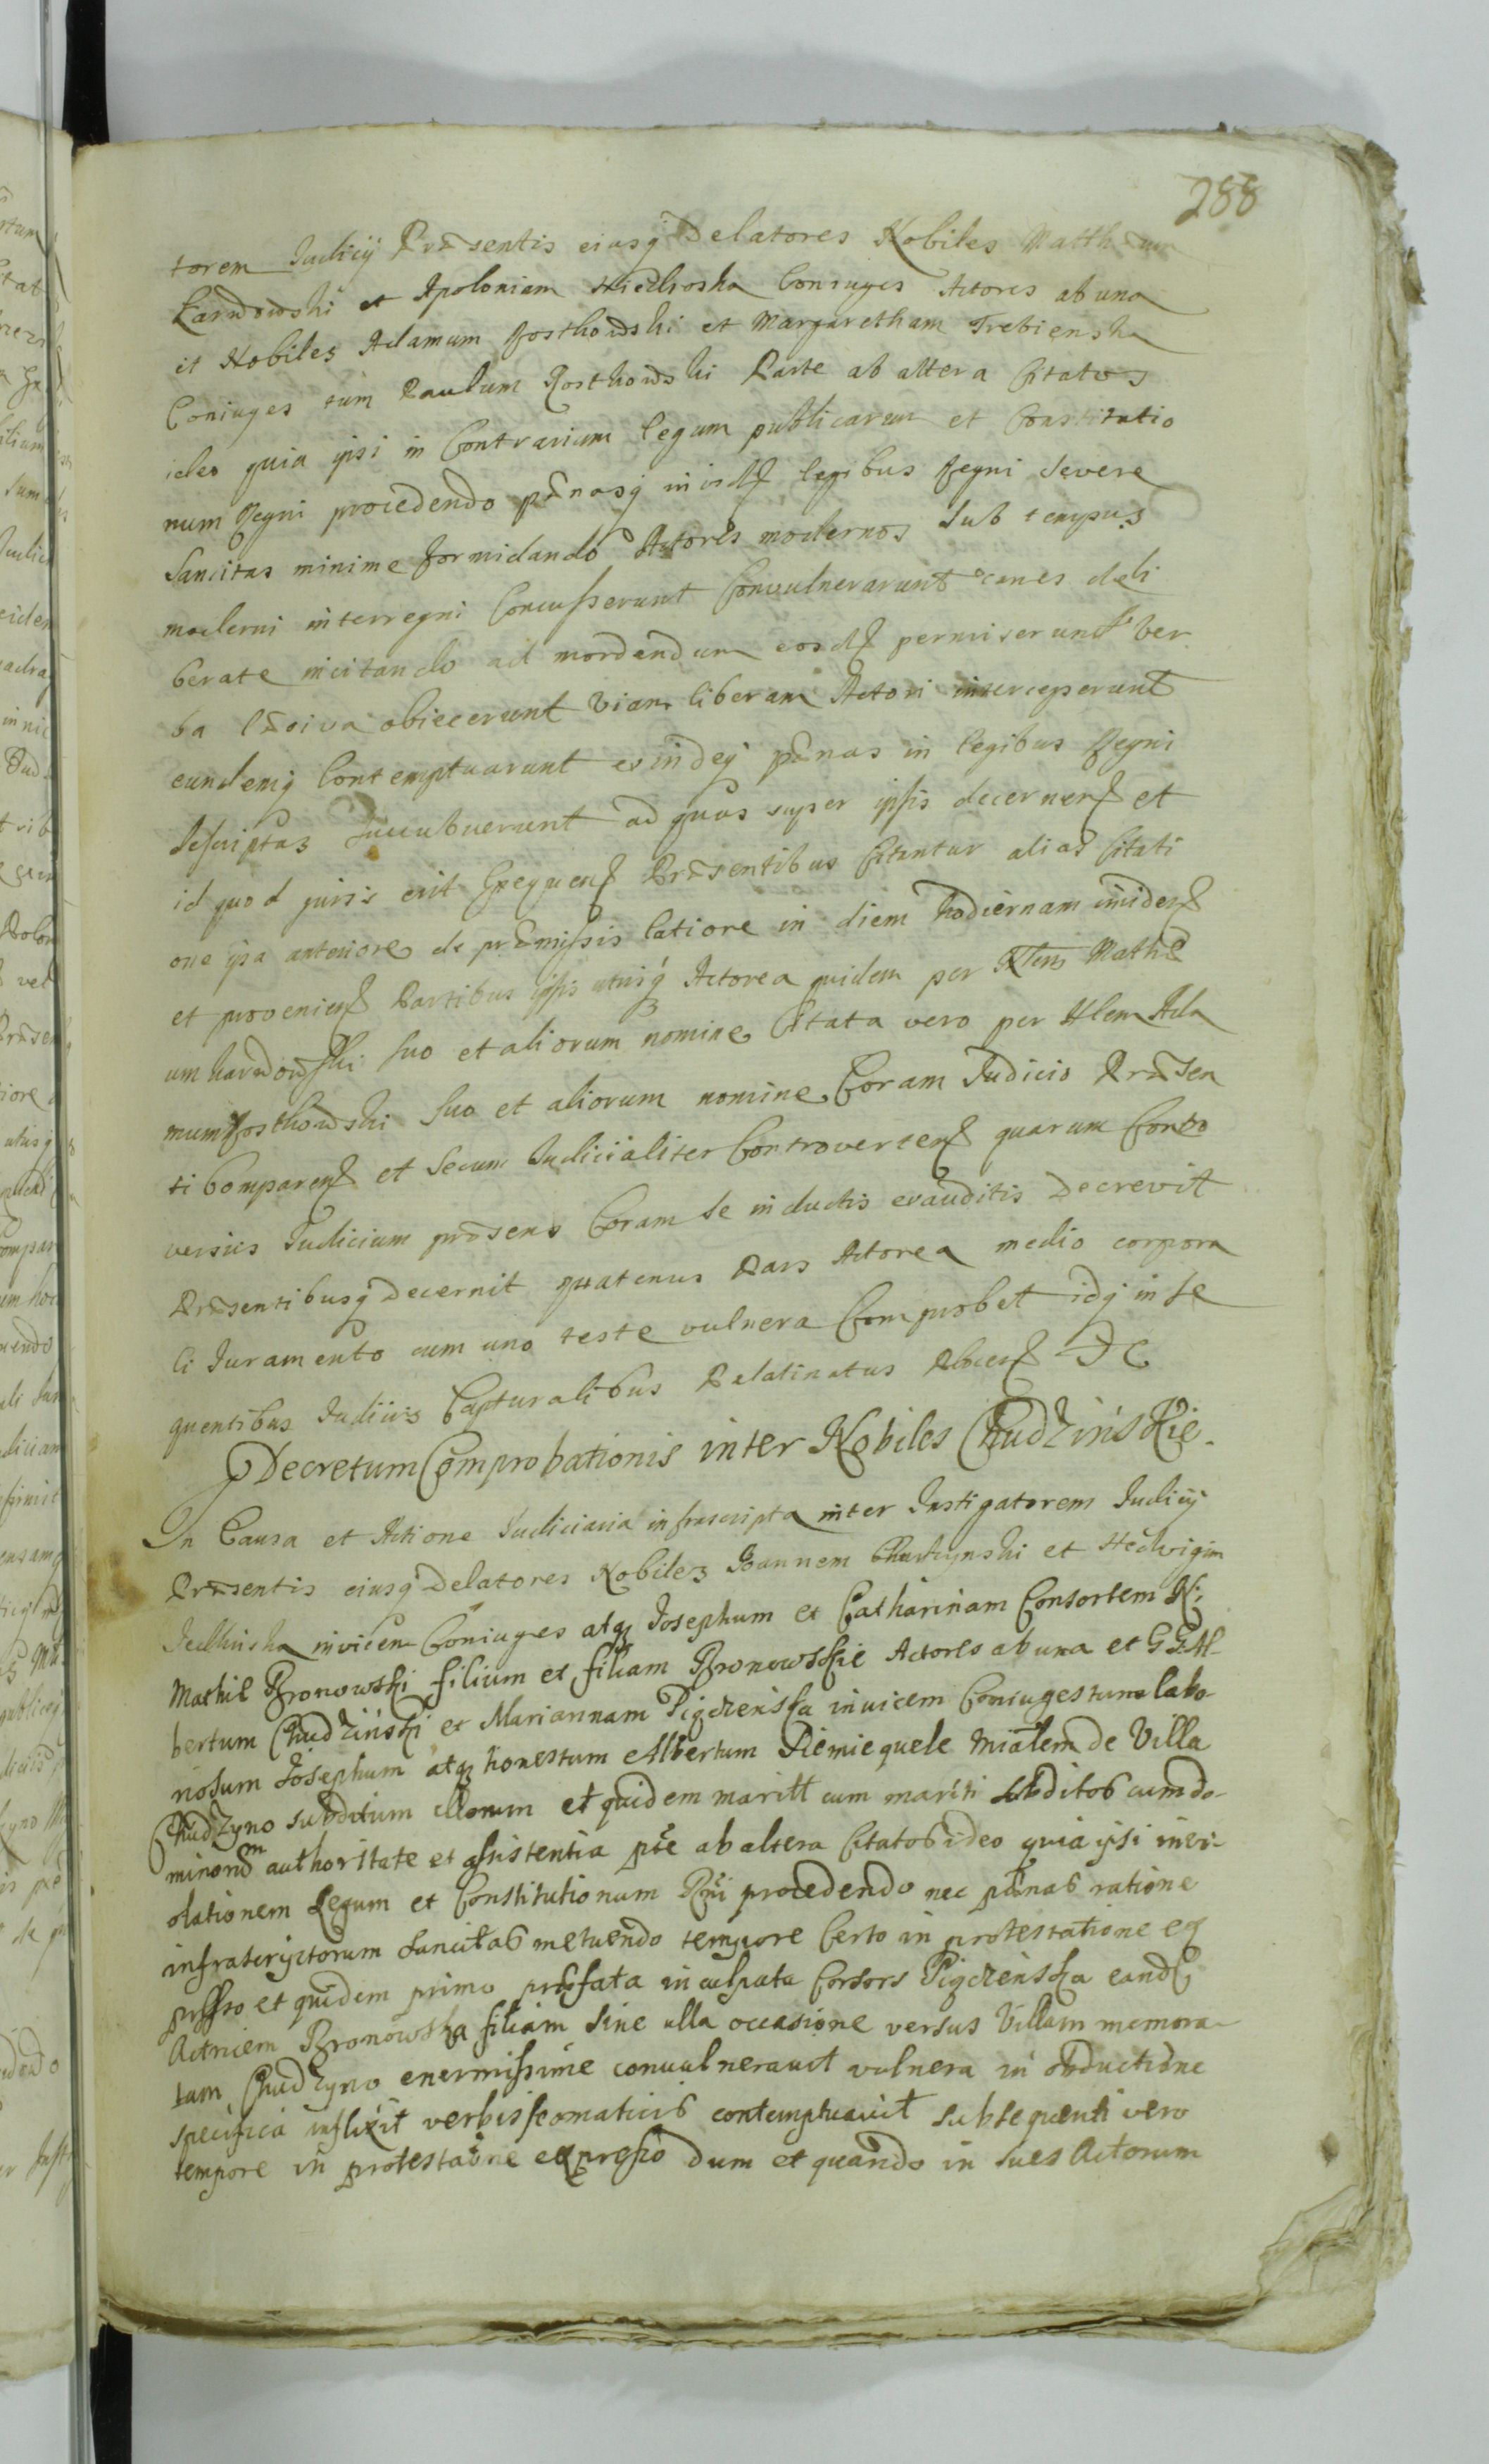 288
torem Judicij Præsentis eiusq Delatores Nobiles Matthæum
Karwowski et Apoloniam Coniuges Actores ab una
et Nobiles Adamum Rostkowski et Margaretham Trebienska
Coniuges tum Paulum Rostkowski Parte ab altera Citatos
ideo quia ipsi in Contrarium legum publicarum et Constitutio
num Regni procedendo pænasq in legibus Regni severe
Sancitas minime formidando Actores modernos Sub tempus
moderni interregni Concusserunt Convulnerarunt canes deli
berate incitando ad mordendum eosd permiserunt Ver
ba læsiva obiecerunt viam liberam Actori interceperunt
eundemq Contemptuarunt exindeq pænas in legibus Regni
descriptas Succubuerunt ad quas super ipsis decernen et
id quod juris erit Præsentibus Citantur alias Citati
one ipsa anteriore de præmissis latiore in diem hodiernam inciden
et provenien Partibus ipsis utrisq Actorea quidem per Mathæ
um Karwowski Suo et aliorum nomine Citata vero per Nlem Ada
mum Rostkowski Suo et aliorum nomine Coram Judicio Præsen
ti Comparen et Secum Judicialiter Controverten quarum Contro
versiis Judicium præsens Coram Se inductis exauditis Decrevit
Præsentibusq Decernit quatenus Pars Actorea medio corpora
li Juramento cum uno teste vulnera Comprobet idq in Se
quentibus Judiciis Capturalibus Palatinatus
Decretum Comprobationis inter Nobiles Chudzinskie.
In Causa et Actione Judiciaria infrascripta inter Instigatorem Judicij
Præsentis eiusq Delatores Nobiles Joannem et Hedvigim
invicem Coniuges atq Josephum et Catharinam Consortem
Mathiæ Bronowski filium et filiam Bronowskie Actores ab una et GG Al-
bertum Chudzinski et Mariannam Pigczenska invicem Coniuges tum labo-
riosum Josephum atq honestum Albertum de Villa
Chudzyno subditum illorum et quidem maritt cum mariti Subditos cum do-
minorum authoritate et assistentia pte ab altera Citatos ideo quia ipsi in vi-
olationem Legum et Constitutionum Rni procedendo nec pænas ratione
infrascriptorum Sancitas metuendo tempore Certo in protestatione ex
presso et quidem primo præfata inculpata Consors Pigczenska eand
Actricem Bronowska filiam Sine ulla occasione versus Villam memora-
tam Chudzyno enermissime convulneravit vulnera in obductione
specifica inflixit verbis scomaticis contemptuavit subsequenti vero
tempore in protestatione expresso dum et quando in sues Actorum